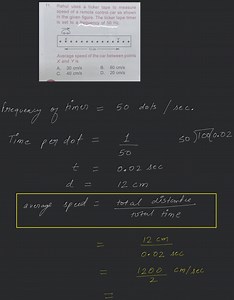 Peter uses a ticker tape to measure
speed of a remote control car as shown
in the given figure. The ticker tape timer
is set to a frequency of 50 Hz.
Average speed of the car between points
X and Y is
A.
B.
C.
D.
Frequency of timer = 50 dots / sec.
Time per dot = 1
50
50 100 0.02
t = 0.02 sec
d = 12 cm
average speed = total distance
total time
= 12 cm
0.02 sec
= 1200 cm/sec
2
=